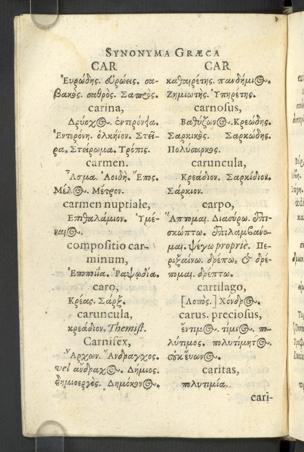 SYNONYMA GRÆCA
CAR
Εὐρώδης. εὐρώεις. σα-
θρός. Σαπρὸς.
carina,
Δρύοχ@.
Ἐντερόνη. ὁλκήιον. Στεῖ-
ρα. Στείρωμα. Τρόπις.
carmen.
Ἆσμα. Ἀοιδή. Ἔπος.
Μέλ@. Μέτρον.
carmen nuptiale,
Ἐπιθαλάμιον. Ὑμέ-
ναι@.
compositio car-
minum,
Ἐποποιΐα. Ῥαψωδία.
caro,
Κρέας. Σάρξ.
caruncula,
κρεάδιον. Themist.
Carnifex,
Ἄρχων.
vel Δήμιος.
δημιοεργὸς. Δημόκοιν@.
CAR
καθαιρέτης. πανδήμι@.
Ζημιωτής. Ὑπηρέτης.
carnosus,
Κρεώδης.
Σαρκικός. Σαρκώδης.
Πολύσαρκος.
caruncula,
Κρεάδιον. Σαρκίδιον.
Σάρκιον.
carpo,
Ἅπτομαι. Διασύρω. ἐπι-
σκώπτω. ἐπιλαμβάνο-
μαι. ψέγω propriè. Πε-
δρέπω, & δρέ-
πομαι. δρέπτω.
cartilago,
[Λοπὸς.] Χόνδρ@.
carus. preciosus,
ἔντιμ@. τίμι@. πο-
λύτιμος. πολυτίμητ@.
caritas,
πολυτιμία.
cari-